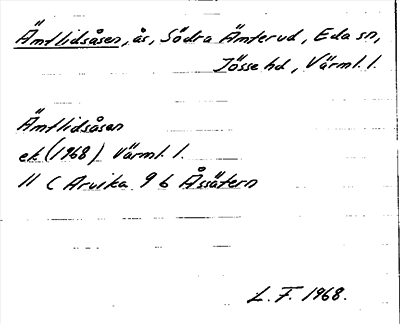 Ämtlidsåsen, ås, Södra Ämterud, Eda sn,
Jösse hd, Värml. l.
Ämtlidsåsen
ek (1968) Värml. l.
11 C Arvika 9 b Åssätern
L. F. 1968.